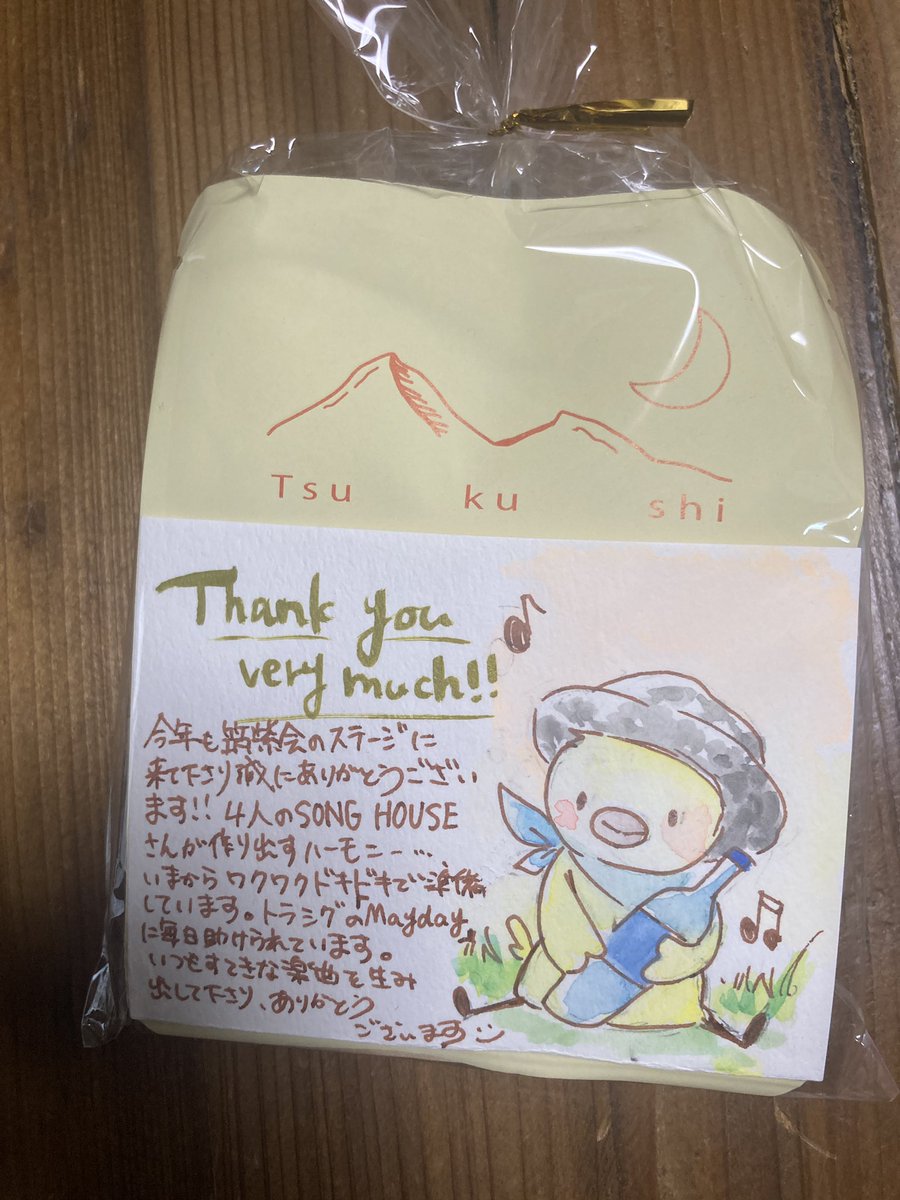 Tsu ku shi
Thank you
very much!!
今年も筑紫会のステージに
来て下さり誠にありがとうござい
ます!! 4人のSONG HOUSE
さんが作り出すハーモニー…
いまからワクワクドキドキで準備
しています。トラシグのMayday
に毎日助けられています。
いつもすてきな楽曲を生み
出して下さり、ありがとう
ございます